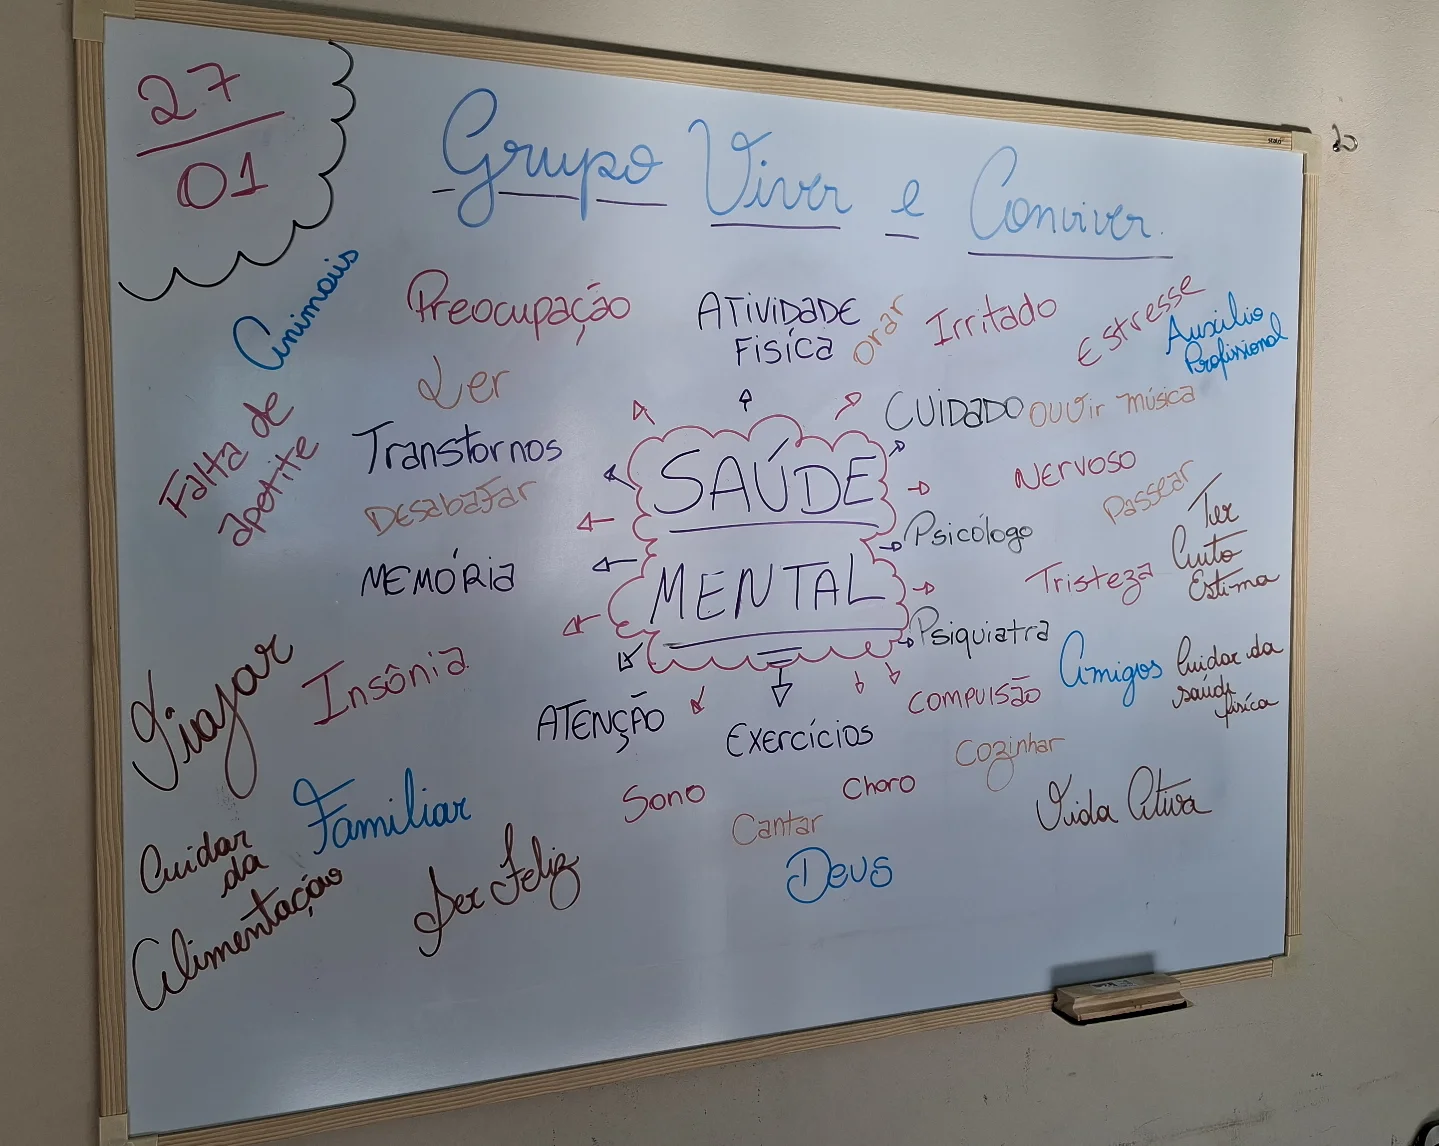 27
01
Grupo Viver e Conviver.
Animais
Preocupação
ATIVIDADE
FISÍCA
Orar
Irritado
Estresse
Auxilio
Profissional
Ler
Falta de
apetite
CUIDADO
OUVir música
Transtornos
SAÚDE
NERVOSO
DESabaFar
Passear
Psicólogo
Ter
Auto
Estima
MEMÓRia
MENTAL
Tristeza
Psiquiatra
Viajar
Insônia
Amigos
Cuidar da
saúde
física
ATENÇÃO
EXERCÍCIOS
COMPUISÃO
Cozinhar
Familiar
Sono
Choro
Vida Ativa
Cantar
Cuidar
da
Alimentação
Ser Feliz
Deus
stalo